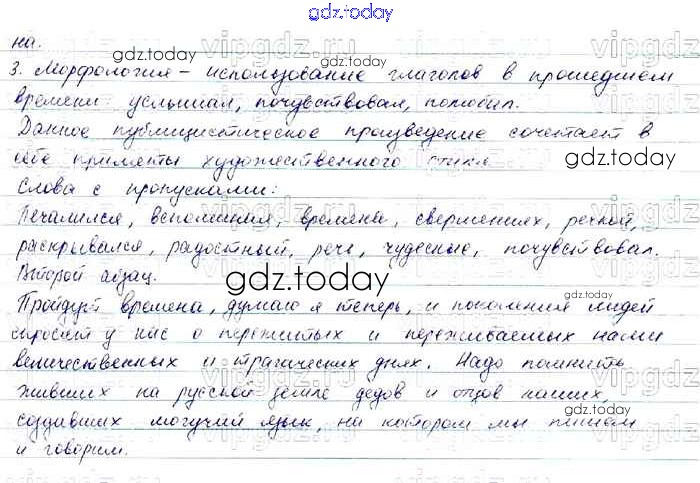 gdz.today
на.
3. Морфология – использование глаголов в прошедшем
времени: услышал, почувствовал, полюбил.
Данное публицистическое произведение сочетает в
себе приметы художественного стиля.
Слова с пропусками:
Печалился, вспоминая, времена, свершениях, речной,
раскрывался, радостный, речь, чудесные, почувствовал.
Второй абзац.
Пройдут времена, думаю я теперь, и поколения людей
спросят у нас о пережитых и переживаемых нами
величественных и трагических днях. Надо помнить
живших на русской земле дедов и отцов наших,
создавших могучий язык, на котором мы пишем
и говорим.